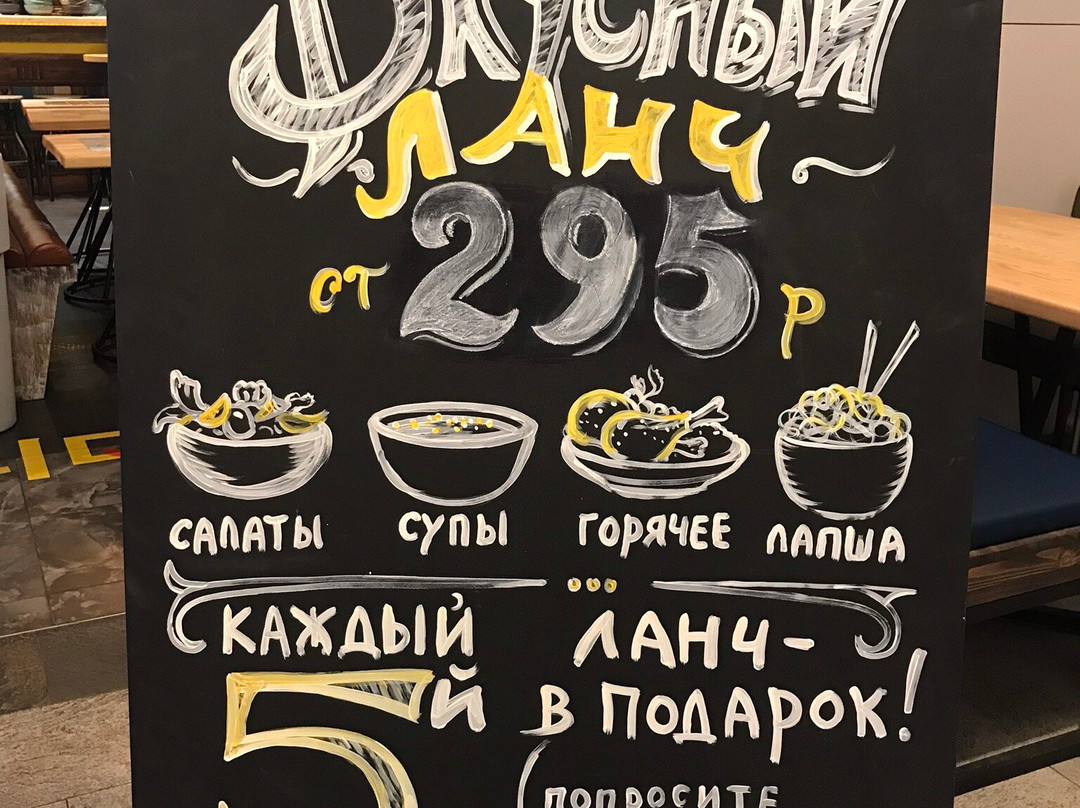 Вкусный
ЛАНЧ
от 295 р
САЛАТЫ СУПЫ ГОРЯЧЕЕ ЛАПША
КАЖДЫЙ ЛАНЧ-
5й В ПОДАРОК!
(ПОПРОСИТЕ